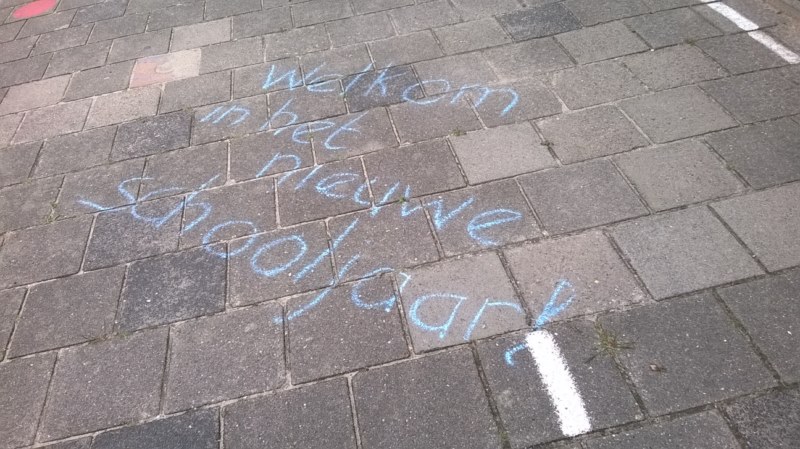 Welkom
in het
nieuwe
schooljaar!